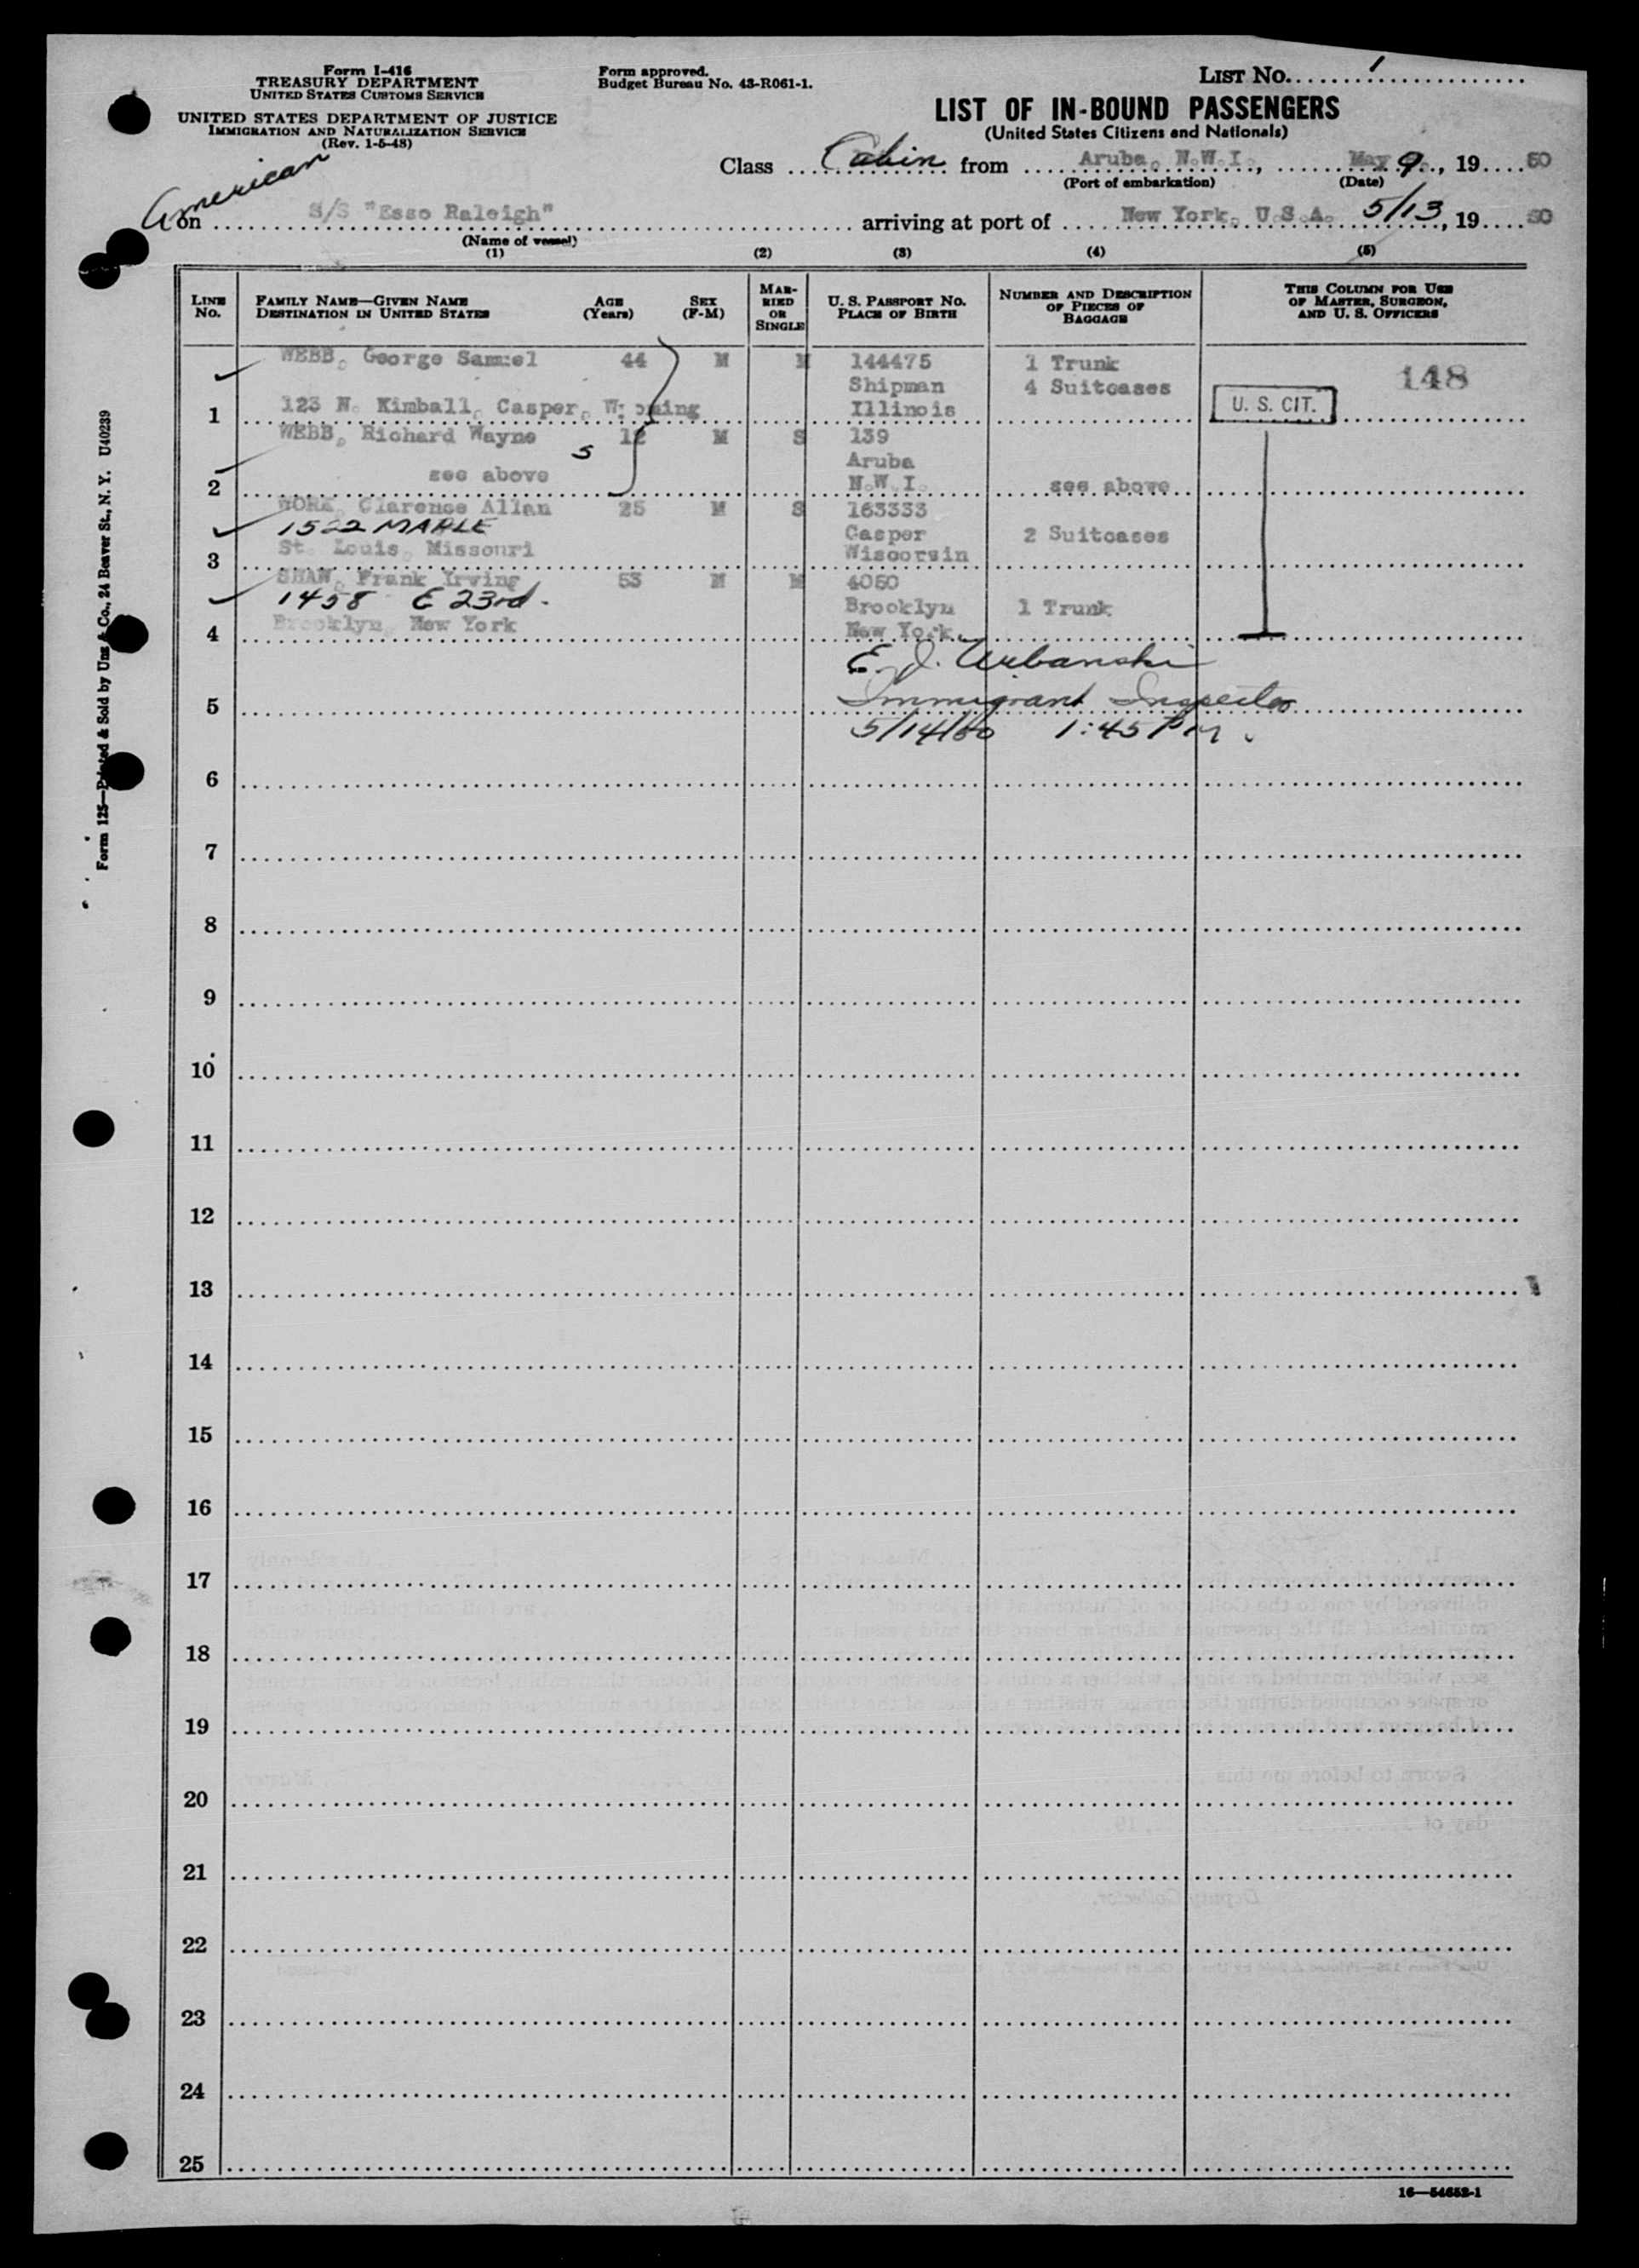 Form I-416
TREASURY DEPARTMENT
UNITED STATES CUSTOMS SERVICE
UNITED STATES DEPARTMENT OF JUSTICE
IMMIGRATION AND NATURALIZATION SERVICE
(Rev. 1-5-48)
Form approved.
Budget Bureau No. 43-R061-1.
LIST NO. 1
LIST OF IN-BOUND PASSENGERS
(United States Citizens and Nationals)
Class Cabin from Aruba, N.W.I., May 9, 1950
(Port of embarkation) (Date)
American
on S/S "Esso Raleigh" arriving at port of New York, U.S.A. 5/13, 1950
(Name of vessel)
(1) (2) (3) (4) (5)
LINE No. FAMILY NAME—GIVEN NAME DESTINATION IN UNITED STATES AGE (Years) SEX (F-M) MARRIED OR SINGLE U. S. PASSPORT No. PLACE OF BIRTH NUMBER AND DESCRIPTION OF PIECES OF BAGGAGE THIS COLUMN FOR USE OF MASTER, SURGEON, AND U. S. OFFICERS
WEBB, George Samuel 44 M M 144475 1 Trunk
Shipman 4 Suitcases 148
1 123 N. Kimball, Casper, Wyoming Illinois U. S. CIT.
WEBB, Richard Wayne 12 M S 139
5 Aruba
2 see above N.W.I. see above
Clarence Allan 25 M S 163333
1522 MAPLE Casper 2 Suitcases
3 St. Louis, Missouri Wisconsin
SHAW, Frank Irving 53 M M 4050
1458 E 23rd. Brooklyn 1 Trunk
4 Brooklyn, New York New York
E. J. Urbanski
5 Immigrant Inspector
5/14/50 1:45 PM.
6
7
8
9
10
11
12
13
14
15
16
17
18
19
20
21
22
23
24
25
16—54652-1
Form 125—Printed & Sold by Unz & Co., 24 Beaver St., N. Y. U40239